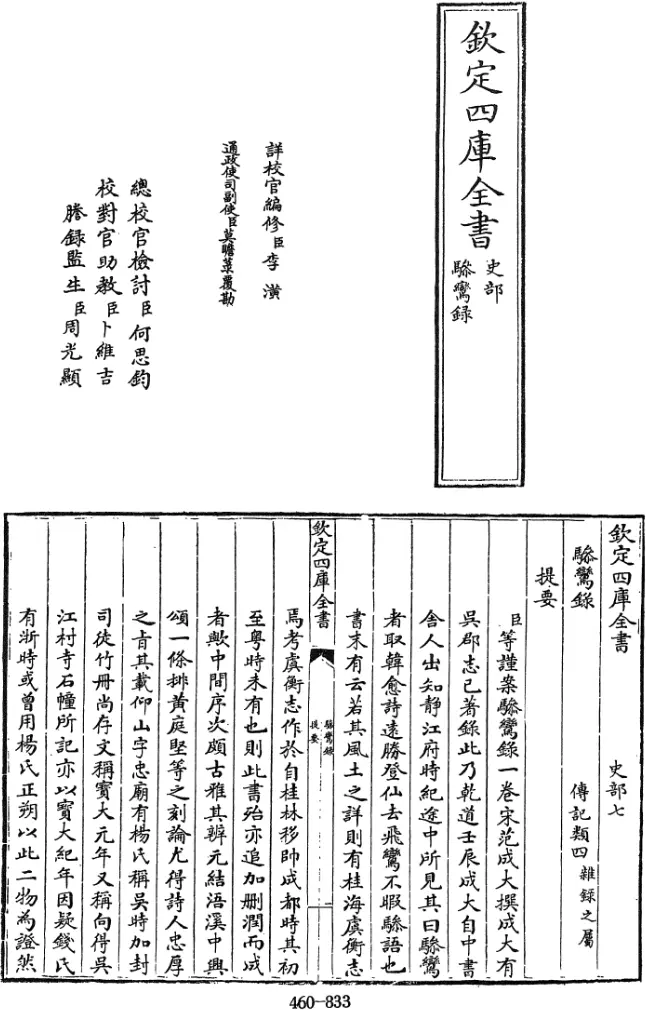 欽定四庫全書
史部
驂鸞録
詳校官編修臣李潢
通政使司副使臣莫瞻菉覆勘
總校官檢討臣何思鈞
校對官助教臣卜維吉
謄録監生臣周光顯
欽定四庫全書
史部七
驂鸞録
傳記類四雜録之屬
提要
臣等謹案驂鸞録一卷宋范成大撰成大有
吳郡志已著録此乃乾道壬辰成大自中書
舍人出知静江府時紀途中所見其曰驂鸞
者取韓愈詩逺勝登仙去飛鸞不暇驂語也
書末有云若其風土之詳則有桂海虞衡志
欽定四庫全書
驂鸞録
提要
焉考虞衡志作於自桂林移帥成都時其初
至粤時未有也則此書殆亦追加刪潤而成
者歟中間序次頗古雅其辨元結浯溪中興
頌一條排黄庭堅等之刻論尤得詩人忠厚
之㫖其載仰山孚忠廟有楊氏稱吳時加封
司徒竹冊尚存文稱寳大元年又稱向得吳
江村寺石幢所記亦以寳大紀年因疑錢氏
有浙時或曾用楊氏正朔以此二物為證然
460-833